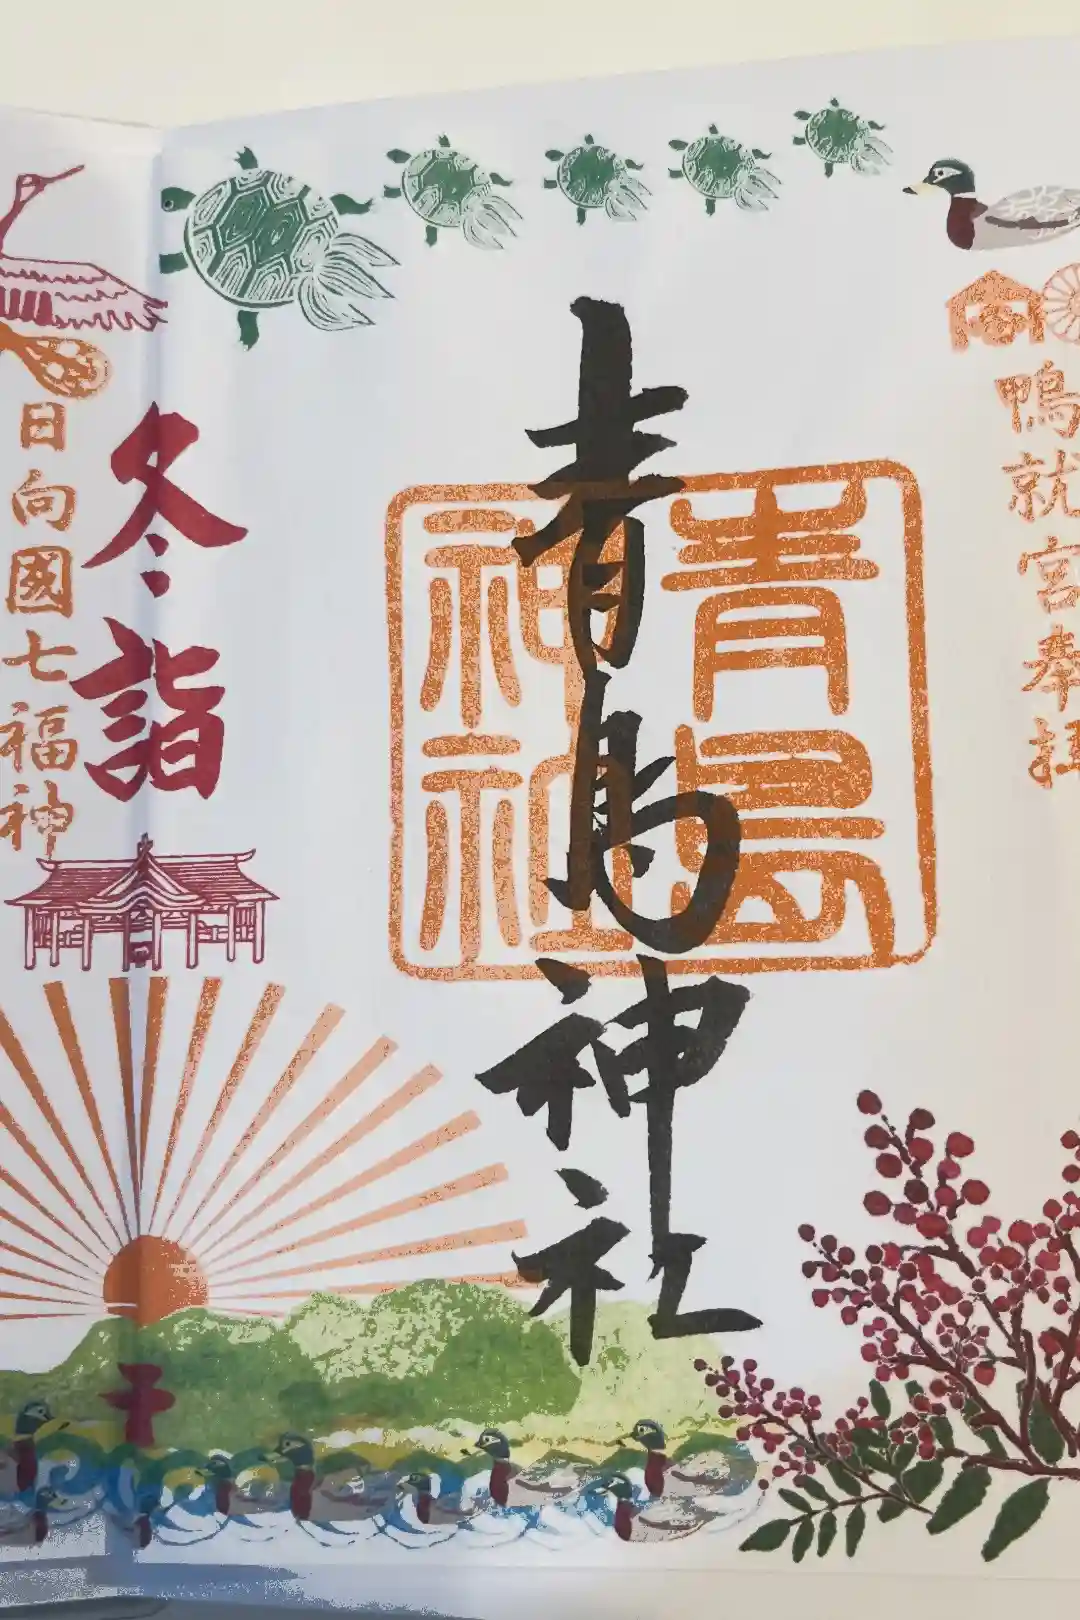 鴨就宮奉拝
青島神社
青島
神社
冬詣
日向國七福神